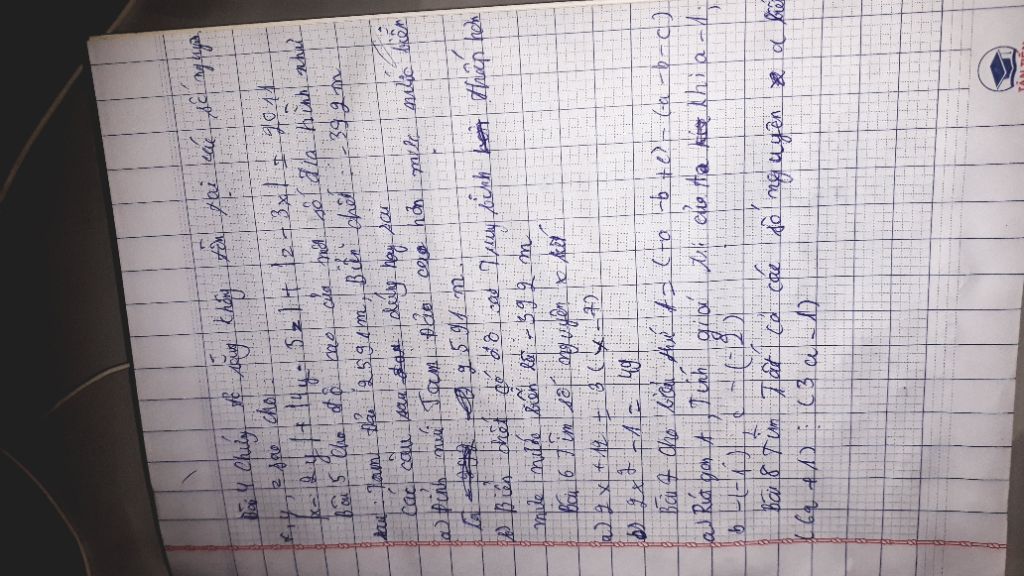 Bài 4 Chứng tỏ rằng không tồn tại các số nguyên
x, y, z sao cho
x - 2y | + | 4y - 5z | + | z - 3x | = 2011
Bài 5 Cho độ cao của một số địa hình như
sau Tam Đảo 2591m, Biển chết -392 m
Các câu sau đúng hay sai
a) Đỉnh núi Tam Đảo cao hơn mực nước biển
là 2591 m
b) Biển chết có độ cao trung bình thấp hơn
mực nước biển là -392 m
Bài 6 Tìm số nguyên x
a) 2x + 19 = 3(x - 7)
b) 2x7 - 1 = 49
Bài 7 Cho biểu thức A = (-a - b + c) - (a - b - c)
a) Rút gọn A, Tính giá trị của A khi a = 1,
b = (-1), c = (-2)
Bài 8 Tìm tất cả các số nguyên a biết
(6a + 1) : (3a - 1)